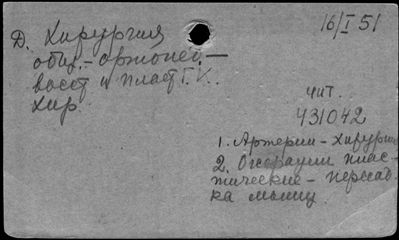 Д. Хирургия
16/I 51
общ.- ортопед.-
восст и пласт
хир.
чит.
431042
1. Артерии - Хирургия
2. Операции плас-
тические - Пересад-
ка мышц